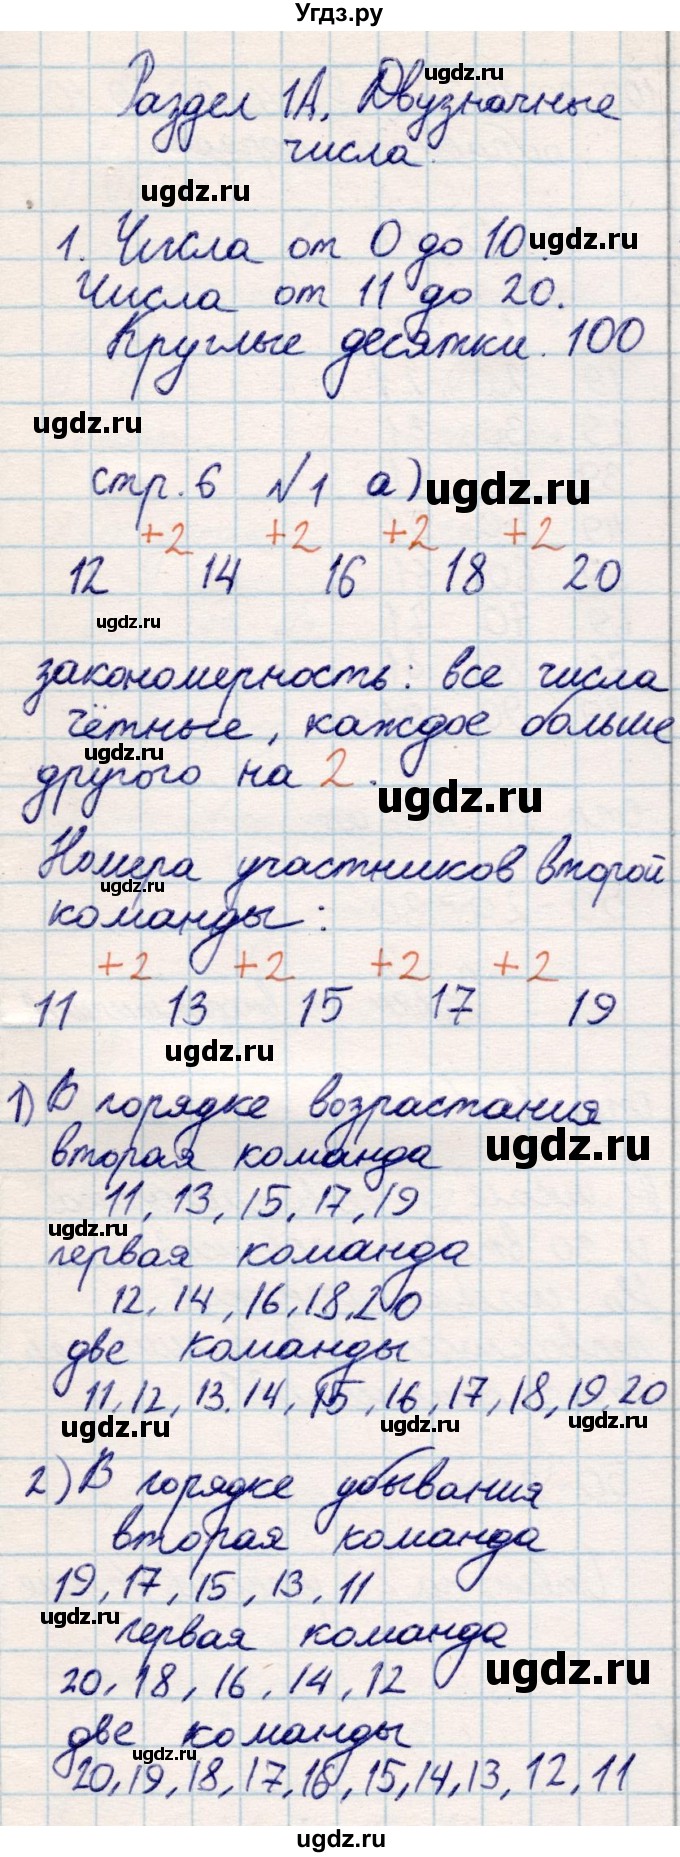 Угдз.ру
Раздел 1А. Двузначные
ugdz.ru
числа.
ugdz.ru
1. Числа от 0 до 10.
ugdz.ru
Числа от 11 до 20.
Круглые десятки. 100
ugdz.ru
стр. 6 №1 а)
ugdz.ru
+2 +2 +2 +2
12 14 16 18 20
ugdz.ru
закономерность: все числа
чётные, каждое больше
ugdz.ru
другого на 2.
ugdz.ru
Номера участников второй
ugdz.ru
команды:
+2 +2 +2 +2
11 13 15 17 19
ugdz.ru
1) В порядке возрастания
ugdz.ru
вторая команда
11, 13, 15, 17, 19
ugdz.ru
первая команда
12, 14, 16, 18, 20
две команды
11, 12, 13, 14, 15, 16, 17, 18, 19, 20
ugdz.ru ugdz.ru ugdz.ru
2) В порядке убывания
вторая команда
19, 17, 15, 13, 11
ugdz.ru
первая команда
ugdz.ru
20, 18, 16, 14, 12
две команды
ugdz.ru
20, 19, 18, 17, 16, 15, 14, 13, 12, 11
ugdz.ru